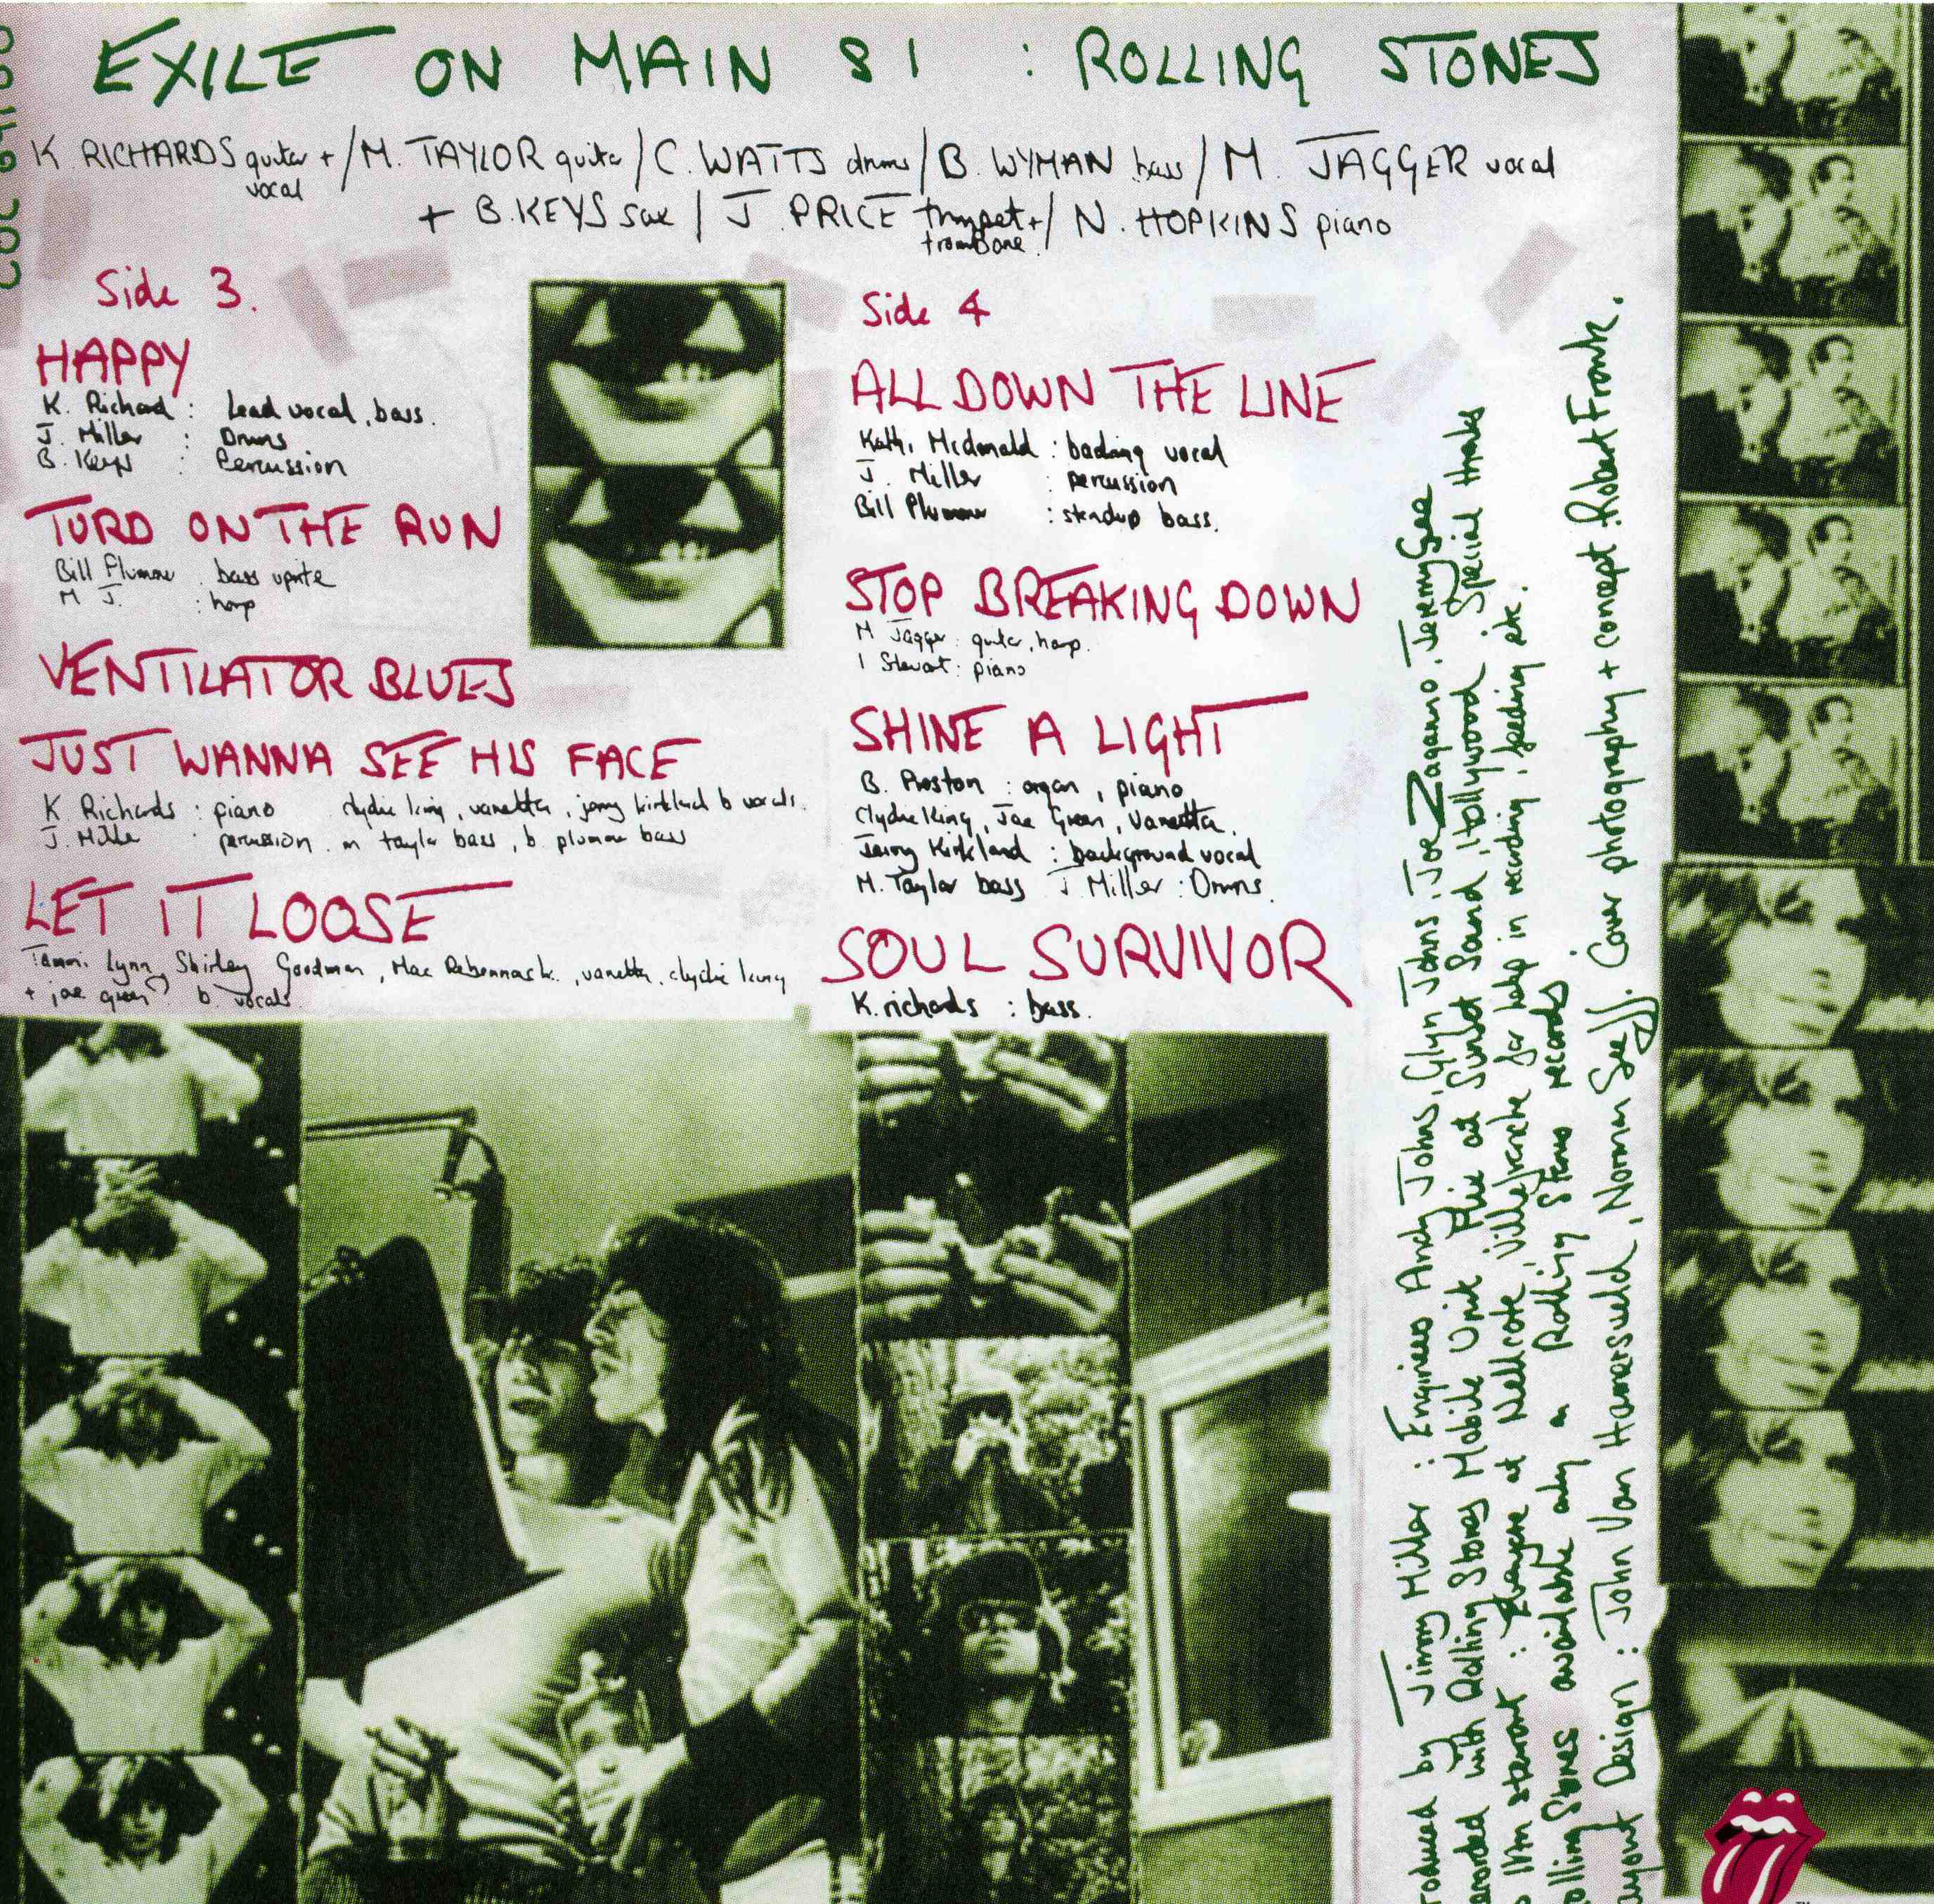 EXILE ON MAIN ST : ROLLING STONES
K RICHARDS guitar + vocal / M. TAYLOR guitar / C. WATTS drums / B. WYMAN bass / M. JAGGER vocal
+ B. KEYS sax / J. PRICE trumpet + trombone / N. HOPKINS piano
Side 3.
HAPPY
K. Richard : Lead vocal, bass.
J. Miller : Drums
B. Keys : Percussion
TURD ON THE RUN
Bill Plummer : bass uprite
M J. : harp
VENTILATOR BLUES
JUST WANNA SEE HIS FACE
K Richards : piano clydie king, vanetta, jerry kirkland b vocals.
J. Miller : percussion. m taylor bass, b. plummer bass
LET IT LOOSE
Tammi Lynn, Shirley Goodman, Mac Rebennack, vanetta, clydie king
+ joe green b. vocals.
Side 4
ALL DOWN THE LINE
Kathi Mcdonald : backing vocal
J. Miller : percussion
Bill Plummer : standup bass.
STOP BREAKING DOWN
M Jagger : guitar, harp.
I Stewart : piano
SHINE A LIGHT
B. Preston : organ, piano
Clydie King, Joe Green, Vanetta,
Jerry Kirkland : background vocal
M. Taylor bass J. Miller : Drums.
SOUL SURVIVOR
K. richards : bass.
roduced by Jimmy Miller : Engineers Andy Johns, Glyn Johns, Joe Zagarino, Jeremy Gee
ecorded with Rolling Stones Mobile Unit Mix at Sunset Sound, Hollywood. Special thanks
o Ian stewart : Everyone at Nellcote Villefranche for help in recording, feeding etc.
olling Stones available only on Rolling Stones records
ayout Design : John Van Hamersveld, Norman Seeff. Cover photography + concept Robert Frank.
TM